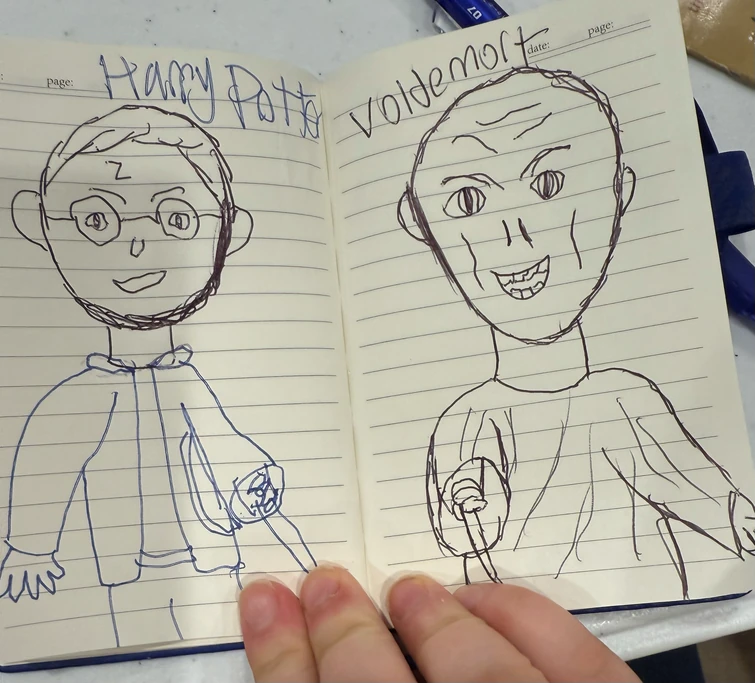 page:
Harry Potter
date:
page:
Voldemort
07